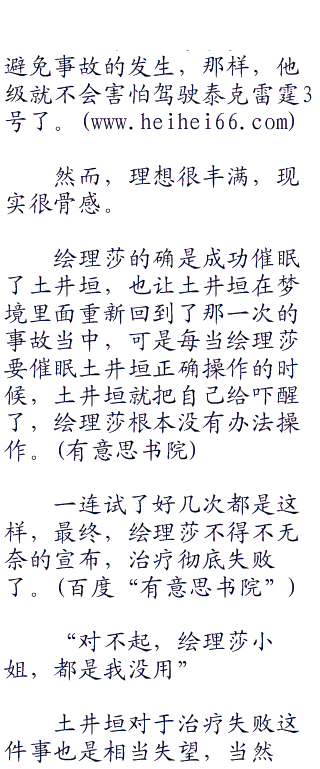 避免事故的发生，那样，他
级就不会害怕驾驶泰克雷霆3
号了。(www.heihei66.com)
然而，理想很丰满，现
实很骨感。
绘理莎的确是成功催眠
了土井垣，也让土井垣在梦
境里面重新回到了那一次的
事故当中，可是每当绘理莎
要催眠土井垣正确操作的时
候，土井垣就把自己给吓醒
了，绘理莎根本没有办法操
作。(有意思书院)
一连试了好几次都是这
样，最终，绘理莎不得不无
奈的宣布，治疗彻底失败
了。(百度“有意思书院”)
“对不起，绘理莎小
姐，都是我没用”
土井垣对于治疗失败这
件事也是相当失望，当然